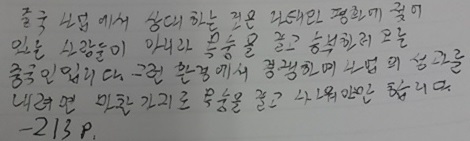 중국 사업에서 상대하는 것은 나태한 평화에 젖어
있는 사람들이 아니라 목숨을 걸고 승부하러 오는
중국인입니다. 그런 환경에서 경쟁하며 사업의 성과를
내려면 마찬가지로 목숨을 걸고 싸워야만 합니다.
-213 P.